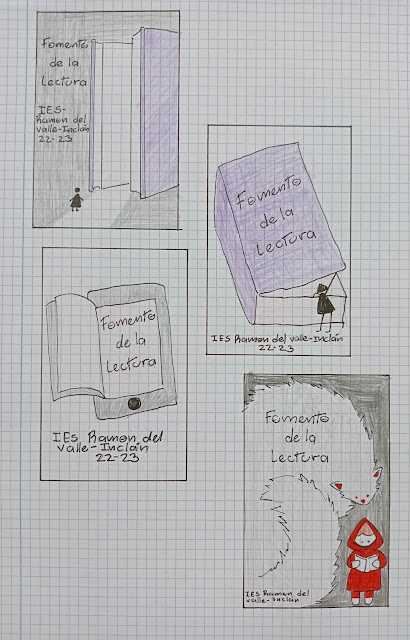 Fomento
de la
Lectura
IES-
Ramon del
Valle-Inclán
22-23
Fomento
de la
Lectura
IES Ramon del Valle-Inclán
22-23
Fomento
de la
Lectura
IES Ramon del
Valle-Inclán
22-23
Fomento
de la
Lectura
IES Ramon del
Valle-Inclán